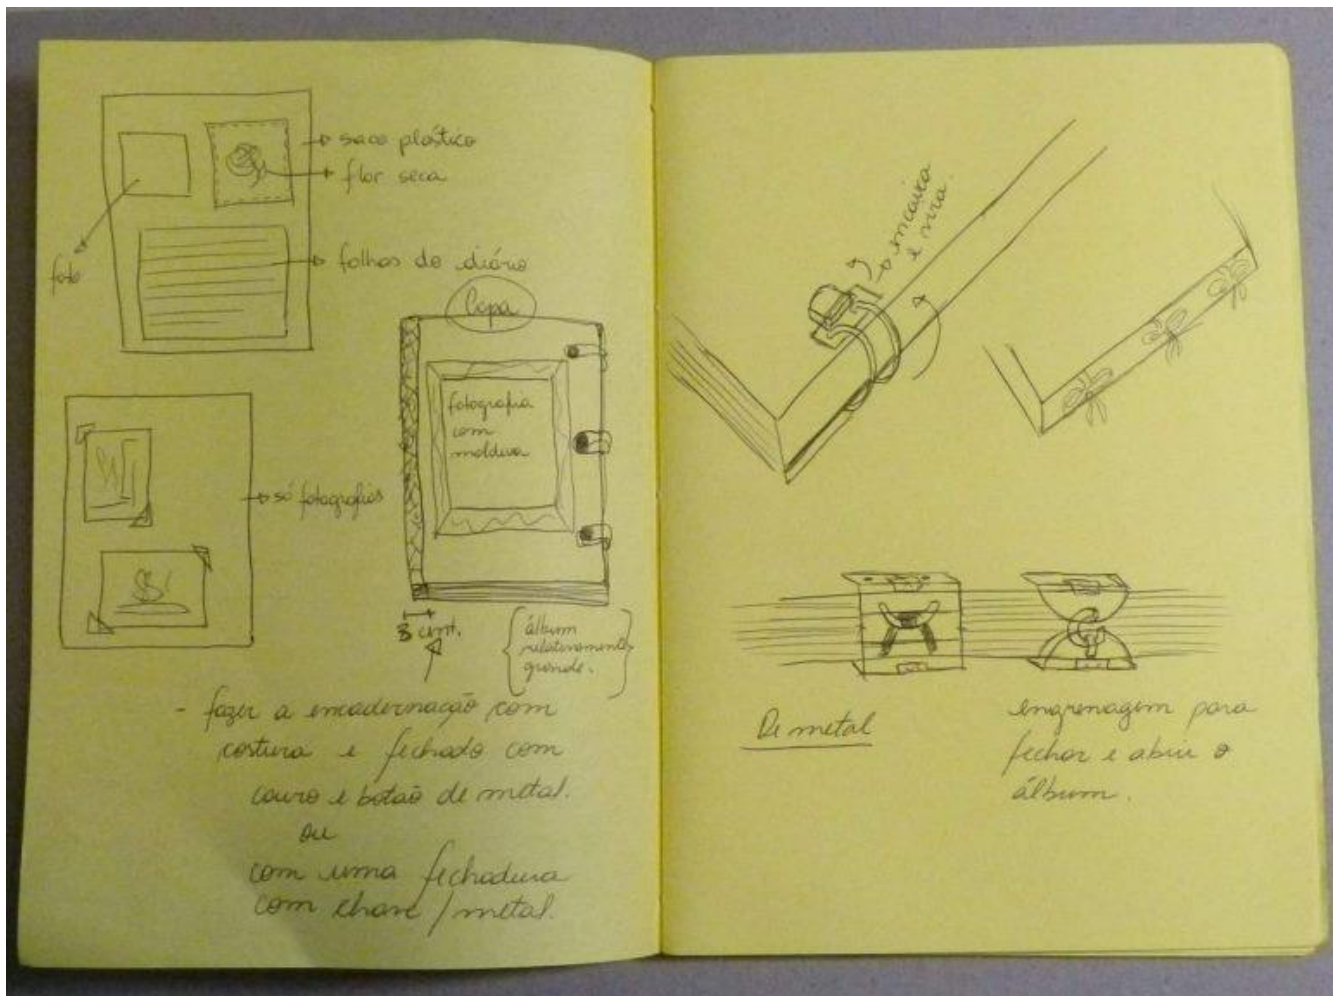 saco plástico
flor seca
foto
folhas do diário
Capa
fotografia
com
moldura
só fotografias
3 cent.
álbum
relativamente
grande.
- fazer a encadernação com
costura e fechado com
couro e botão de metal.
ou
com uma fechadura
com chave / metal.
encaixa
e vira.
De metal
engrenagem para
fechar e abrir o
álbum.